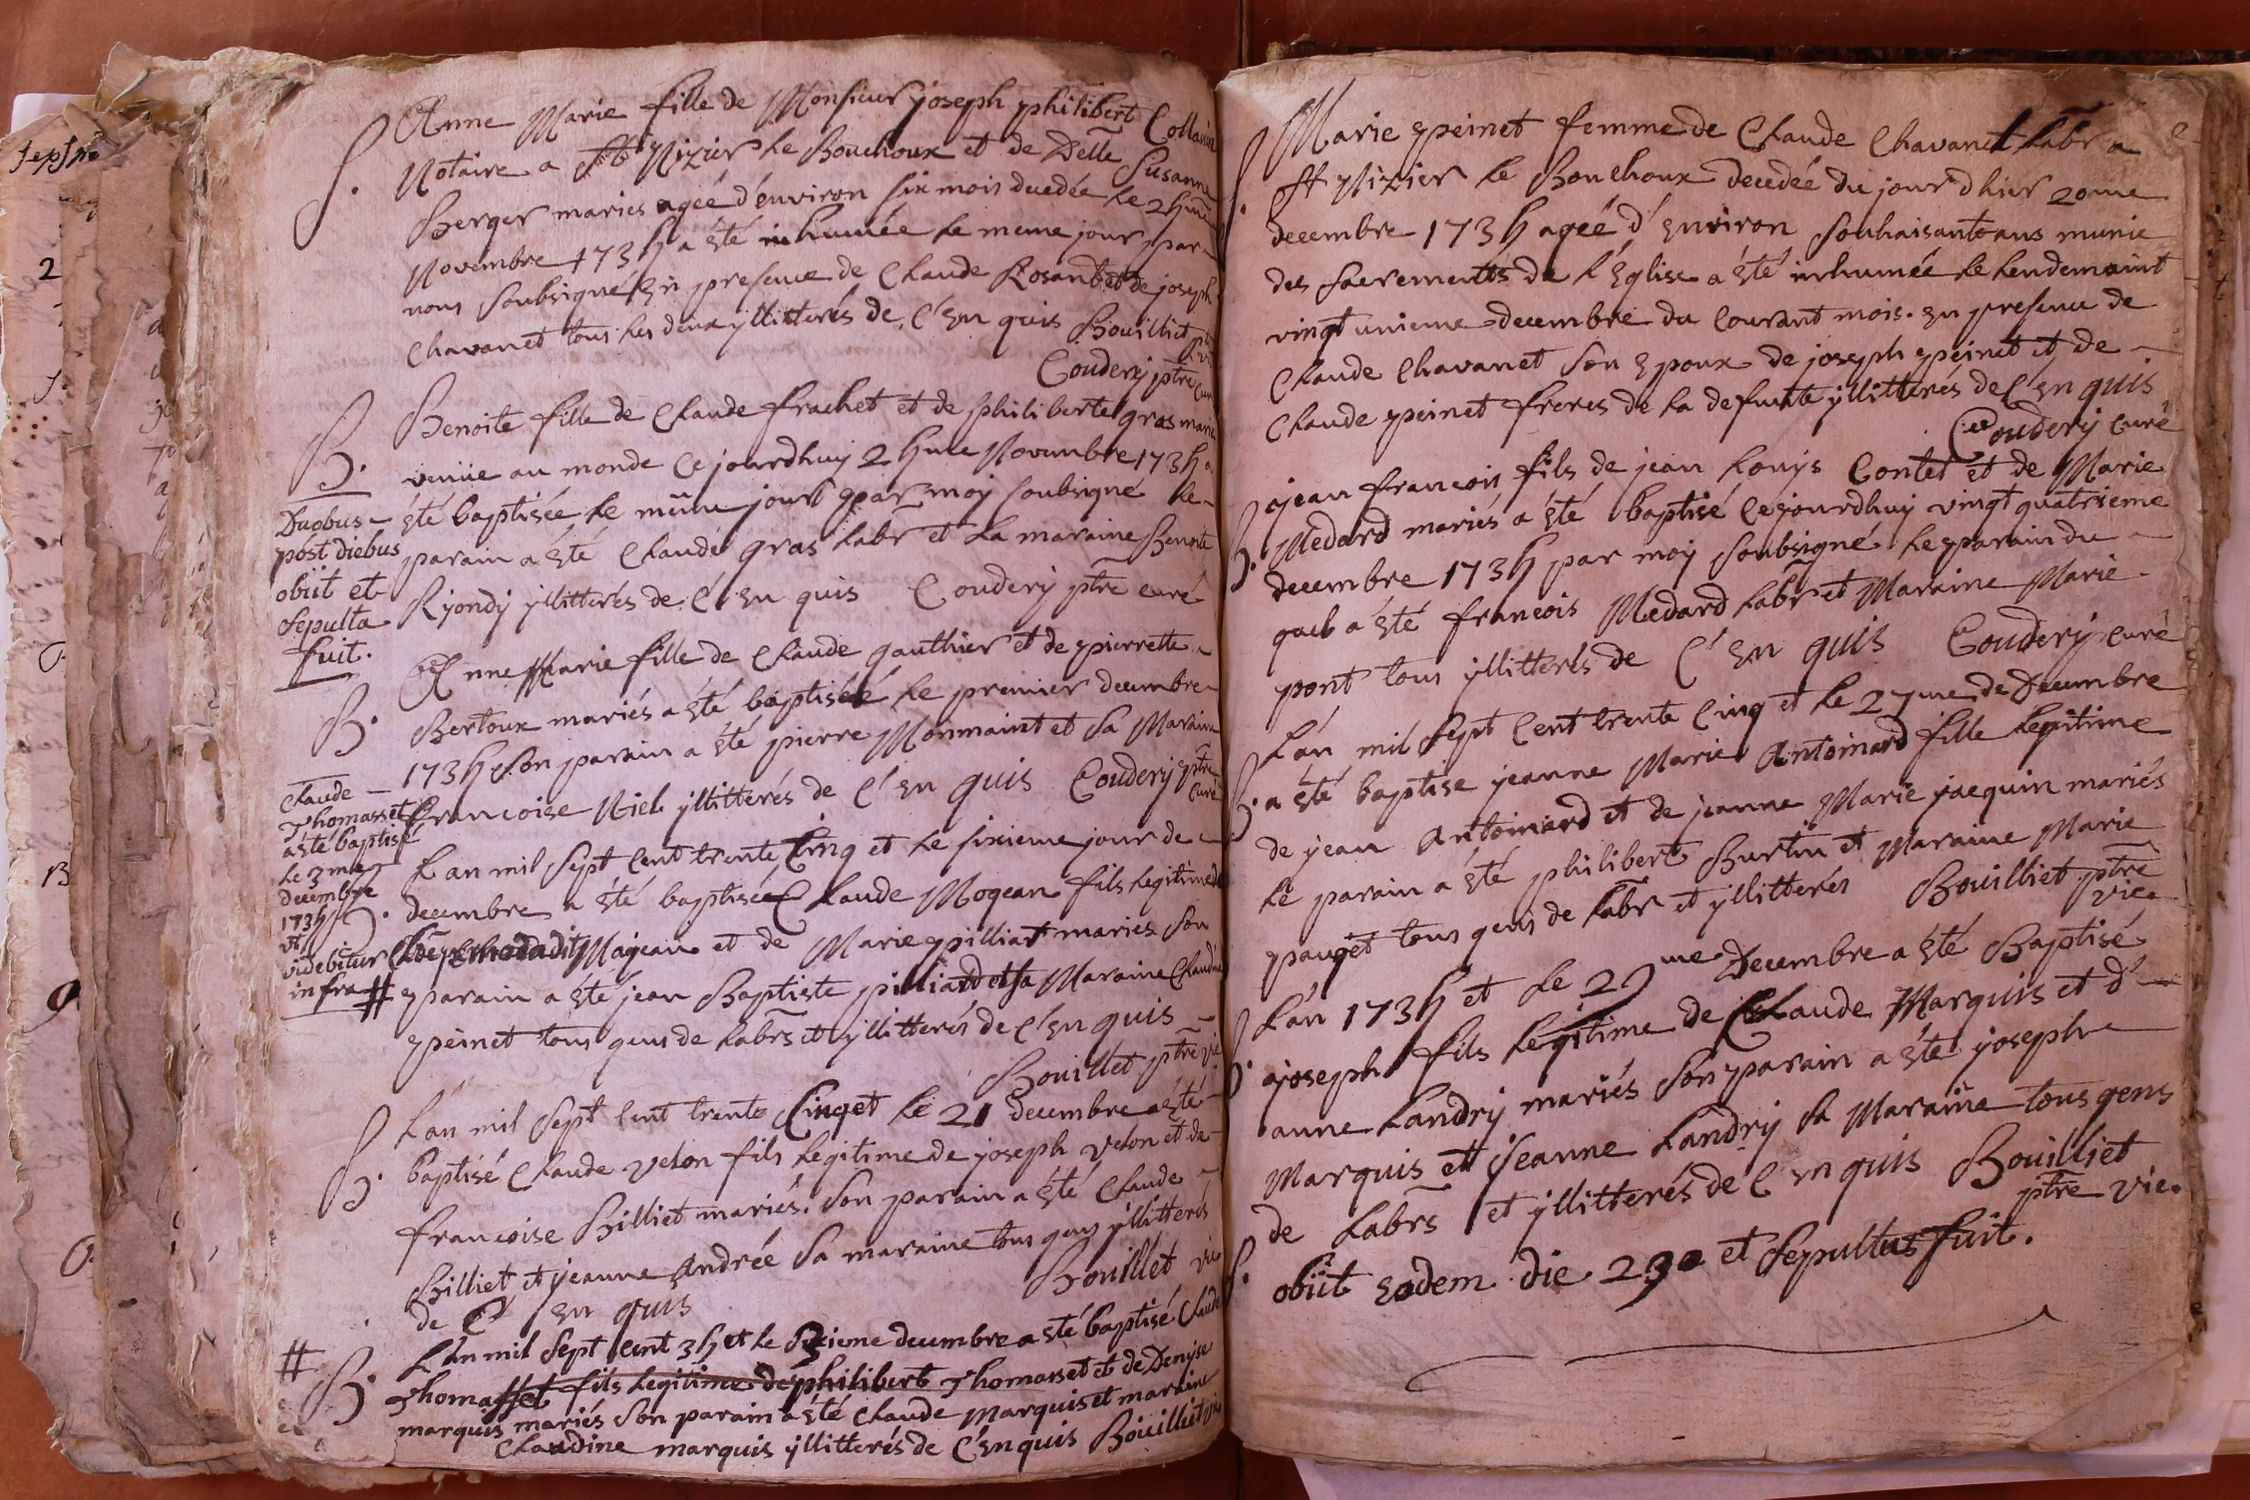 Anne Marie fille de Monsieur joseph philibert Collain
S. Notaire a St Nizier le Bouchoux et de Delle Susanne
Berger mariés ageé d'environ six mois decedée le 25me
Novembre 1735 a été inhumée le meme jour par
nous soubsigné en presence de Claude Rosand et de joseph
Chavanet tous les deux yllitterés de C'enquis Bouilliet
Coudery ptre curé
B. Benoite fille de Claude frachet et de philiberte gras mariés
venüe au monde Cejourdhuy 25me Novembre 1735 a
été baptisée le même jour par moy soubsigné le
parain a été Claude gras labr et la maraine Benoite
Ryondy yllitterés de C'enquis Coudery ptre curé
Duobus
post diebus
obiit et
sepulta
fuit.
B. Anne Marie fille de Claude gauthier et de pierrette
Bertoux mariés a été baptisée le premier decembre
1735 son parain a été pierre Monmaint et sa Maraine
francoise Niel yllitterés de C'enquis Coudery ptre
curé
Claude
Thomasset
a été baptisé
le 3me
decembre
1735
vt
videbitur
infra #
B. L'an mil sept cent trente Cinq et le sixieme jour de
decembre a été baptisée Claude Mogean fils legitime de
Majean et de Marie pilliart mariés son
parain a été jean Baptiste pilliard et sa Maraine Claudine
peinet tous gens de labrs et yllitterés de C'enquis
Bouillet ptre vic
B. L'an mil sept cent trente Cinq et le 21 decembre a été
baptisé Claude velon fils legitime de joseph velon et de
francoise Billiet mariés. Son parain a été Claude
Billiet et jeanne Andrée sa maraine tous gens yllitterés
de C'enquis Bouillet vic
# B. L'an mil sept cent 35 et le 3ieme decembre a été baptisé Claude
Thomasset fils legitime de philibert Thomasset et de Denyse
marquis mariés son parain a été Claude marquis et maraine
Claudine marquis yllitterés de C'enquis Bouilliet vic
S. Marie peinet femme de Claude Chavanet labr a
St Nizier le Bouchoux decedée du jour d'hier 20me
decembre 1735 ageé d'environ souhaisante ans munie
des sacrements de l'Eglise a été inhumée le lendemaint
vingt unieme decembre du Courant mois. en presence de
Claude Chavanet son epoux de joseph peinet et de
Claude peinet freres de la defunte yllitterés de C'enquis
Coudery curé
B. jean francois fils de jean Louys Contet et de Marie
Medard mariés a été baptisé Cejourdhuy vingt quatrieme
decembre 1735 par moy soubsigné. le parain du
quel a été francois Medard labr et Maraine Marie
pont tous yllitterés de C'enquis Coudery curé
L'an mil sept cent trente cinq et le 27me de Decembre
B. a été baptise jeanne Marie Antoinard fille legitime
de jean Antoinard et de jeanne Marie jacquin mariés
le parain a été philibert Burtin et Maraine Marie
pauget tous gens de labr et yllitterés Bouilliet ptre
vic.
L'an 1735 et le 29me Decembre a été Baptisé
B. joseph fils legitime de Claude Marquis et d'
anne Landry mariés son parain a été joseph
Marquis et jeanne Landry sa Maraine tous gens
de labrs et yllitterés de C'enquis Bouilliet
ptre vic.
S. obiit eodem die 29a et sepultus fuit.